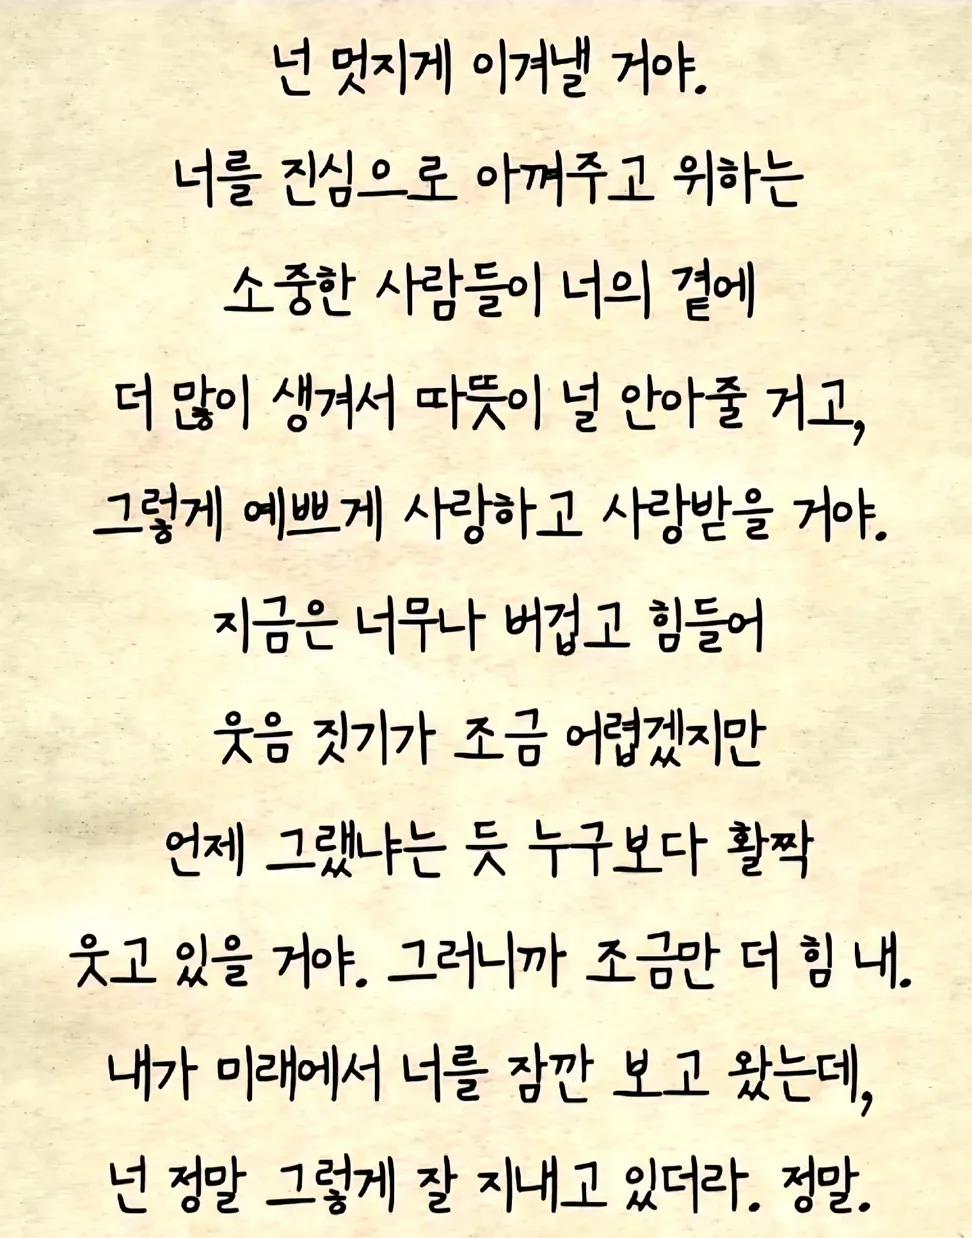 넌 멋지게 이겨낼 거야.
너를 진심으로 아껴주고 위하는
소중한 사람들이 너의 곁에
더 많이 생겨서 따뜻이 널 안아줄 거고,
그렇게 예쁘게 사랑하고 사랑받을 거야.
지금은 너무나 버겁고 힘들어
웃음 짓기가 조금 어렵겠지만
언제 그랬냐는 듯 누구보다 활짝
웃고 있을 거야. 그러니까 조금만 더 힘 내.
내가 미래에서 너를 잠깐 보고 왔는데,
넌 정말 그렇게 잘 지내고 있더라. 정말.